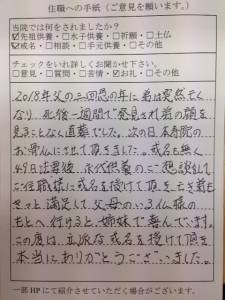 住職への手紙(ご意見を願います。)
当院では何をされましたか?
☑先祖供養・□水子供養・□祈願・□土仏
☑戒名・□相談・□手元供養・□その他
チェックをいれ詳しくお聞かせ下さい。
□意見・□質問・□苦情・☑お礼・□その他
2018年父の三回忌の年に弟は突然亡く
なり、死後一週間で発見され弟の顔を
見ることなく直葬でした。次の日本寿院の
お骨仏にさせて頂きました。戒名も無く
49日法要後 永代供養のご相談をして
ご住職様に戒名を授けて頂き
きっと満足して父母の
もとへ行けると、姉妹で喜んでいます。
この度は、立派な戒名を授けて頂き
本当にありがとうございました。
一部HPにて紹介させていただく場合がございます。